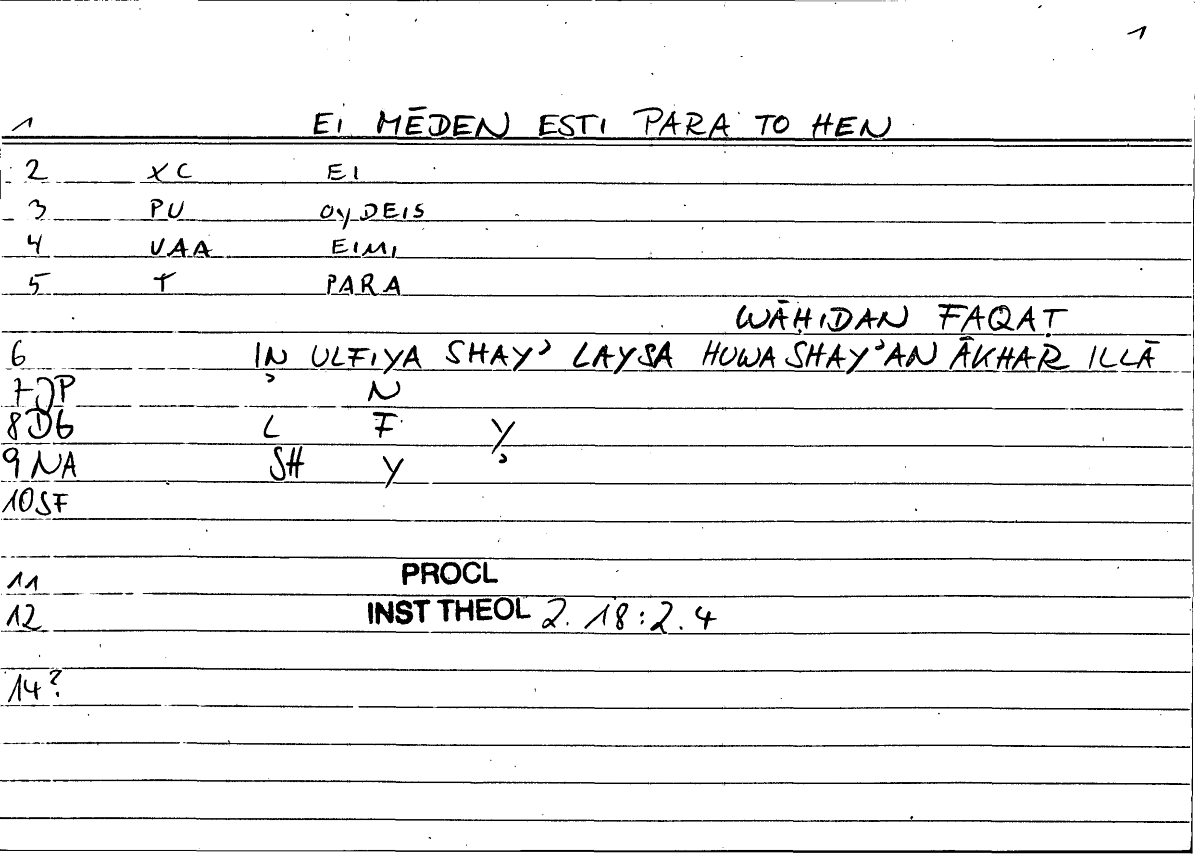 1
1 EI MĒDEN ESTI PARA TO HEN
2 XC EI
3 PU OYDEIS
4 VAA EIMI
5 T PARA
WĀḤIDAN FAQAṬ
6 IN ULFIYA SHAYʾ LAYSA HUWA SHAYʾAN ĀKHAR ILLĀ
7 JP ʾ N
8 D6 L F Y
9 NA SH Y ʾ
10 SF
11 PROCL
12 INST THEOL 2. 18:2.4
14?